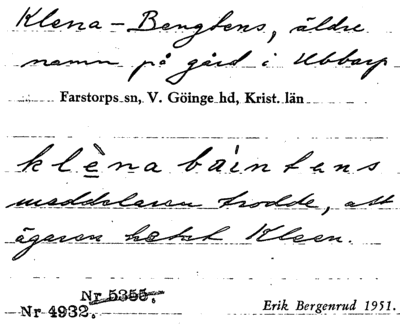 Klena-Bengtens, äldre
namn på gård i Ubbarp
Farstorps sn, V. Göinge hd, Krist. län
klèna bàintens
meddelaren trodde, att
ägaren hetat Kleen.
Nr 5355.
Nr 4932.
Erik Bergenrud 1951.